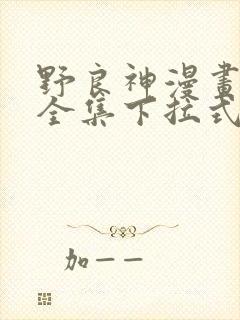 野良神漫畫
全集下拉式
加一一